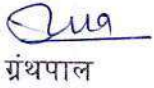 ग्रंथपाल